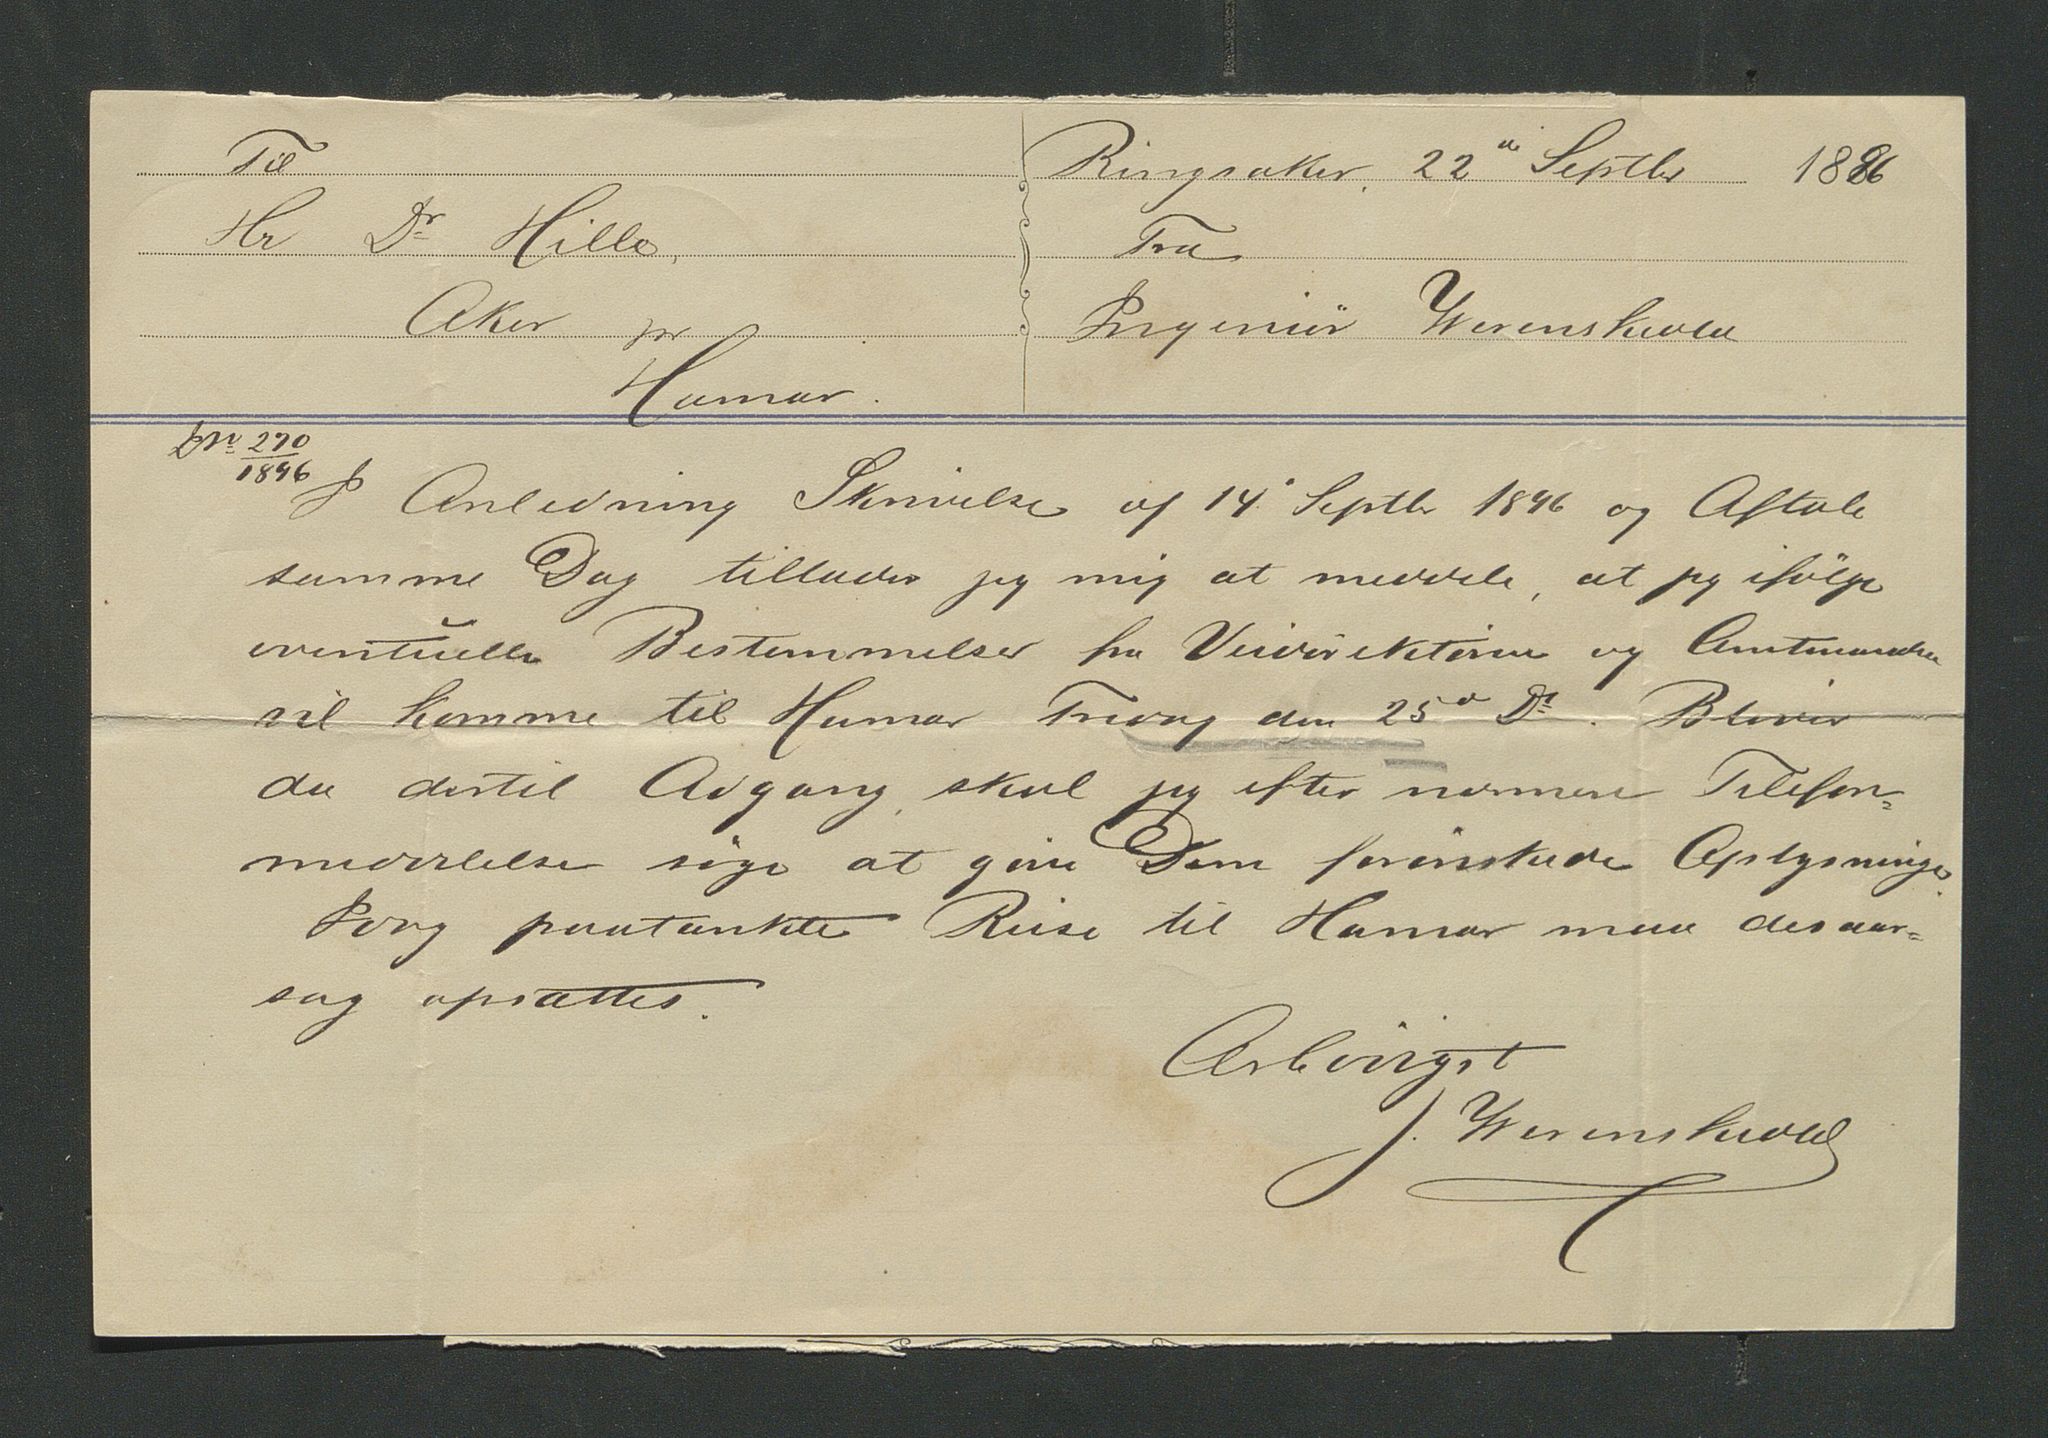 Til
Hr Dr Hille,
Aker pr
Hamar.
Ringsaker, 22d Septbr 1896
Fra
Ingeniör Werenskiold
JNr 270
1896
I Anledning Skrivelse af 14d Septbr 1896 og Aftale
samme Dag tillader jeg mig at meddele, at jeg ifölge
eventuelle Bestemmelser fra Veidirektören og Amtmanden
vil komme til Hamar Fredag den 25d Ds. Bliver
da dertil Adgang, skal jeg efter nærmere Telefon-
meddelelse söge at give Dem forönskede Oplysninger.
Idag paatænkte Reise til Hamar maa desaar-
sag opsættes.
Ærbödigst
J. Werenskiold